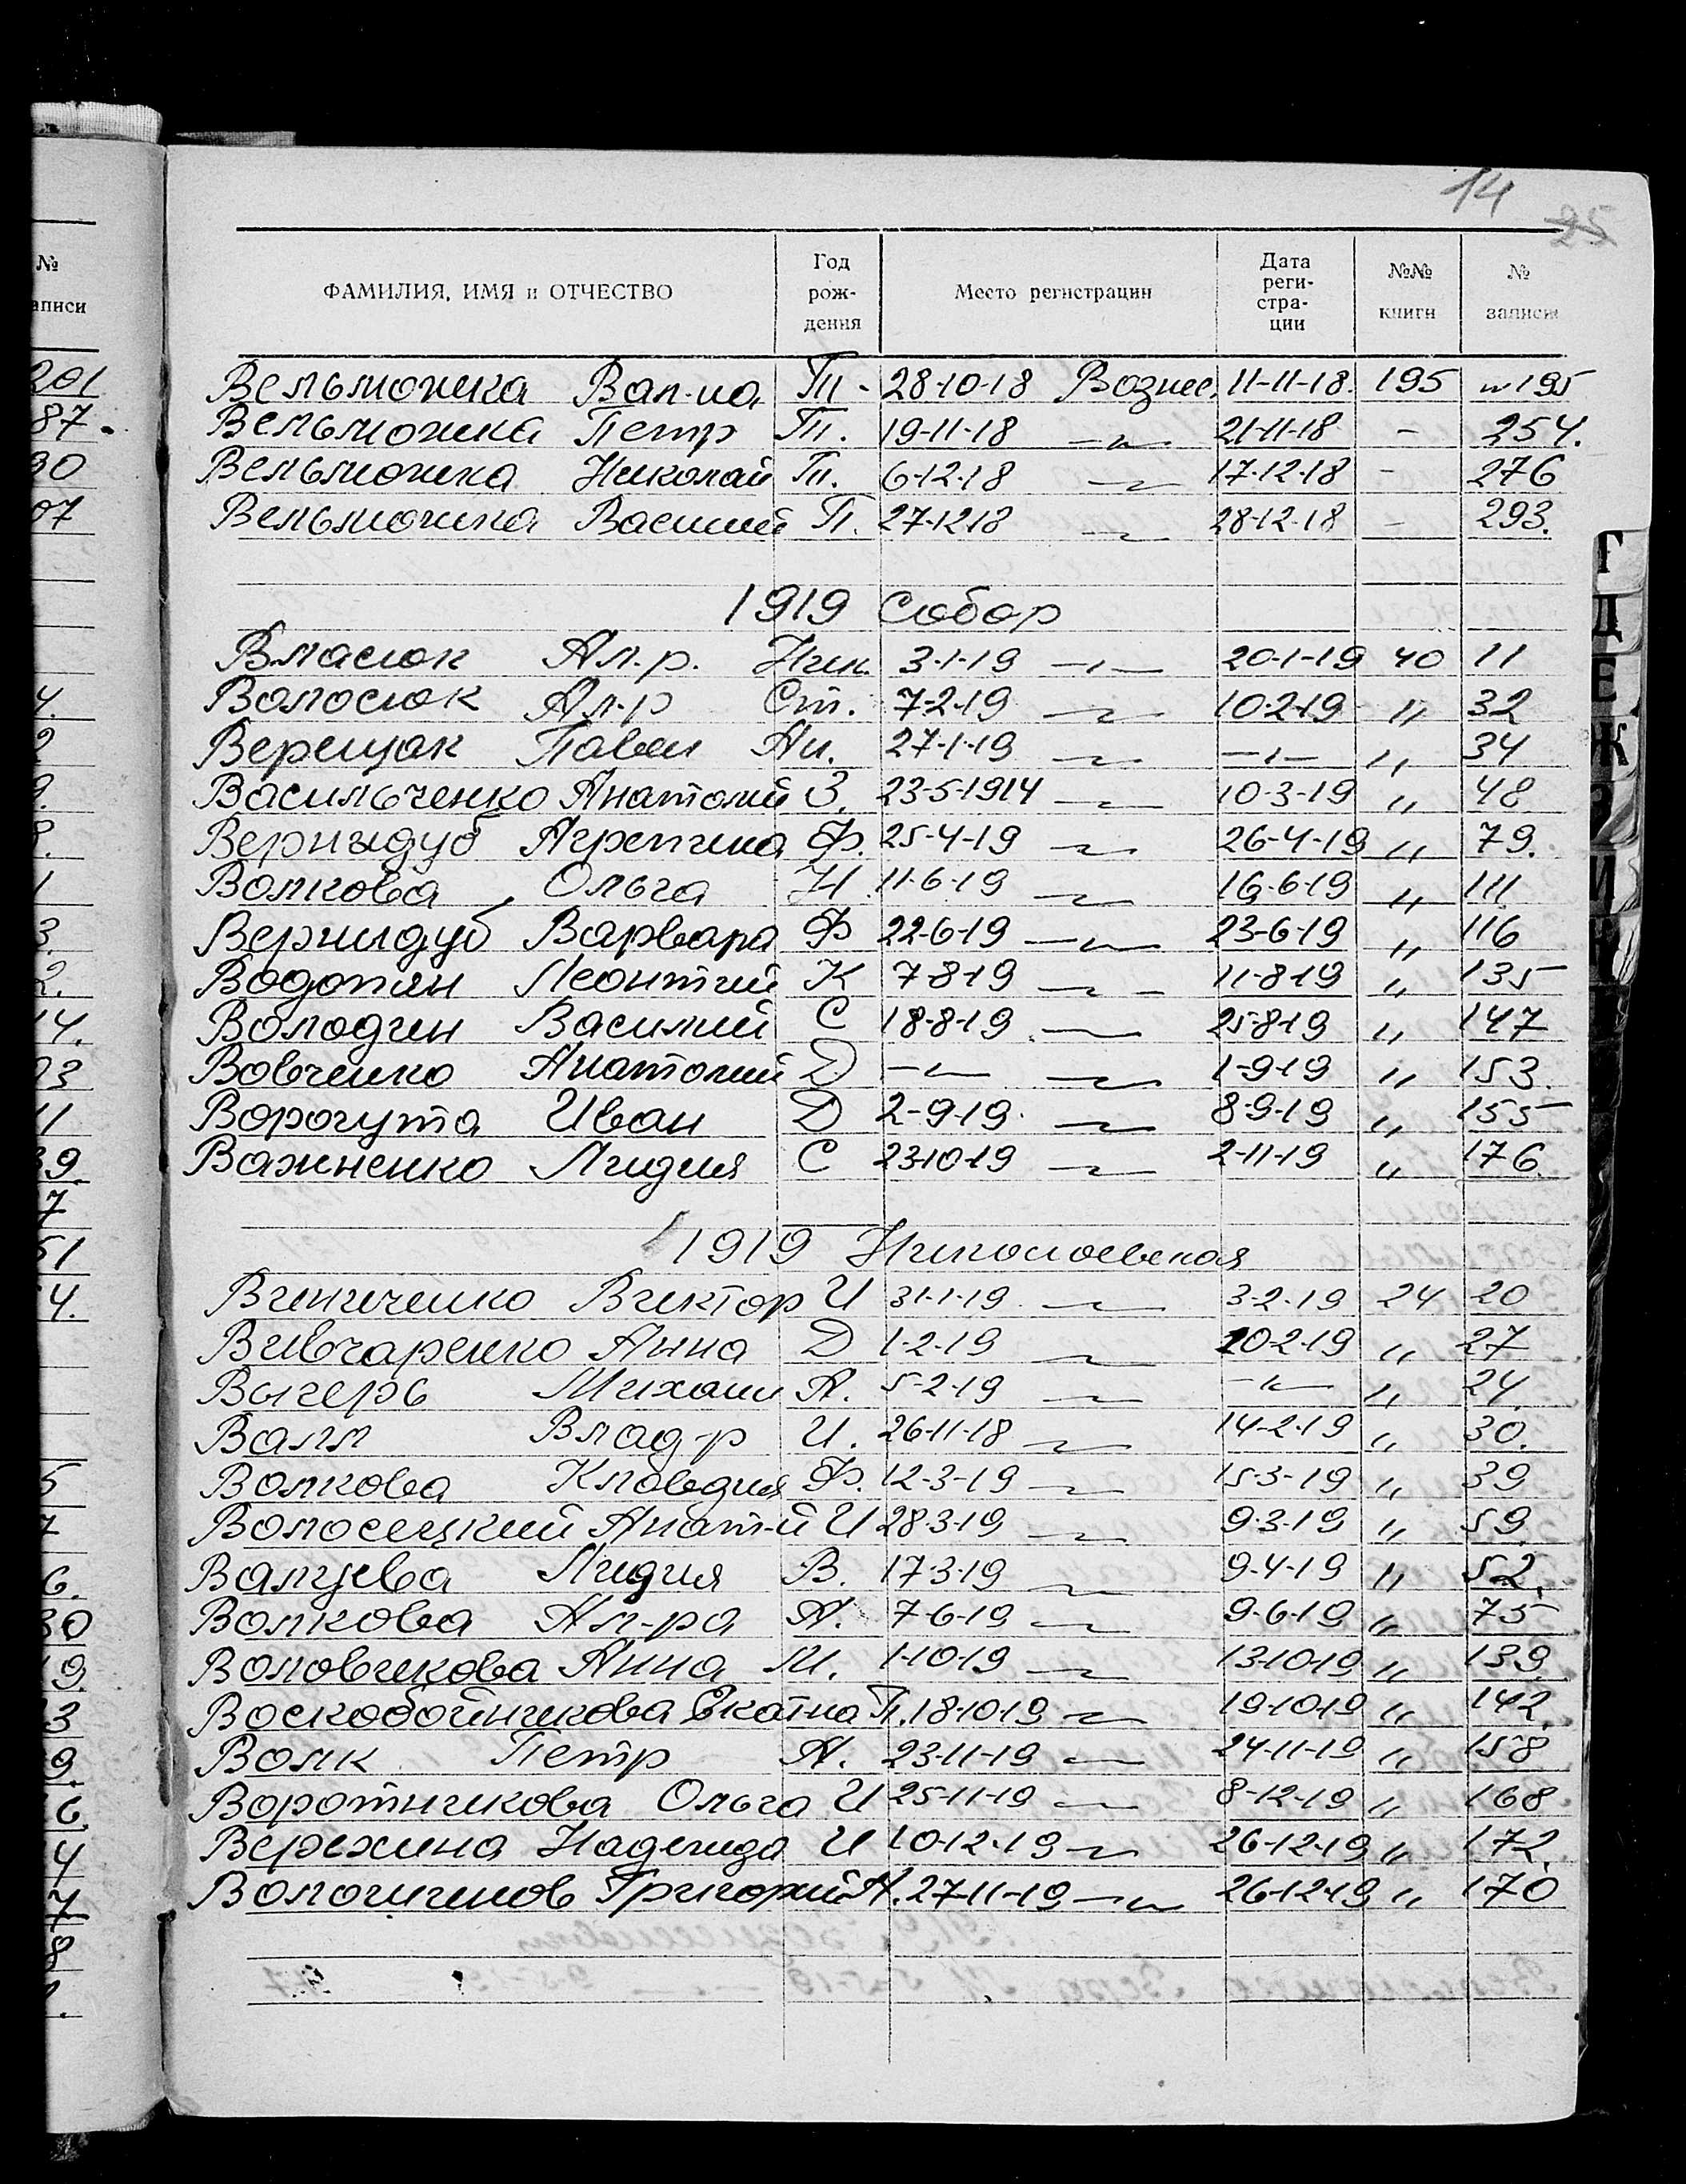 14
25
№
записи
ФАМИЛИЯ, ИМЯ и ОТЧЕСТВО | Год рождения | Место регистрации | Дата регистрации | №№ книги | № записи
Вельможка Вал-на П - 28-10-18 Вознес. 11-11-18. 195 195
Вельможка Петр П. 19-11-18 –"– 21-11-18 - 254.
Вельможка Николай П. 6-12-18 –"– 17-12-18 - 276
Вельможка Василий П. 27-12-18 –"– 28-12-18 - 293.
1919 Собор
Власюк Ал.р. Ник. 3-1-19 –"– 20-1-19 40 11
Волосюк Ал-р Ст. 7-2-19 –"– 10-2-19 " 32
Верещак Павел Ан. 27-1-19 –"– –"– " 34
Васильченко Анатолий З. 23-5-1914 –"– 10-3-19 " 48
Вернидуб Агрепина Ф. 25-4-19 –"– 26-4-19 " 79.
Волкова Ольга Н 11-6-19 –"– 16-6-19 " 111
Вернидуб Варвара Ф 22-6-19 –"– 23-6-19 " 116
Водопян Леонтий К 7-8-19 –"– 11-8-19 " 135
Володин Василий С 18-8-19 –"– 25-8-19 " 147
Вовченко Анатолий Д –"– –"– 1-9-19 " 153.
Ворогута Иван Д 2-9-19 –"– 8-9-19 " 155
Важненко Лидия С 23-10-19 –"– 2-11-19 " 176.
1919 Николаевская
Виниченко Виктор И 31-1-19 –"– 3-2-19 24 20
Вивчаренко Анна Д 1-2-19 –"– 10-2-19 " 27
Вычерь Михаил А. 5-2-19 –"– –"– " 24.
Валл Влад-р И. 26-11-18 –"– 14-2-19 " 30.
Волкова Клавдия Ф. 12-3-19 –"– 15-3-19 " 39
Волосецкий Анат-й И 28-3-19 –"– 9-3-19 " 59.
Валуева Лидия В. 17-3-19 –"– 9-4-19 " 52.
Волкова Ал-ра А. 7-6-19 –"– 9-6-19 " 75
Воловикова Анна М. 1-10-19 –"– 13-10-19 " 139.
Воскобойникова Екат-на П. 18-10-19 –"– 19-10-19 " 142.
Волк Петр А. 23-11-19 –"– 24-11-19 " 158
Воротникова Ольга И 25-11-19 –"– 8-12-19 " 168
Верехина Надежда И 10-12-19 –"– 26-12-19 " 172.
Григорий А. 27-11-19 –"– 26-12-19 " 170
Г
Д
Е
Ж
И